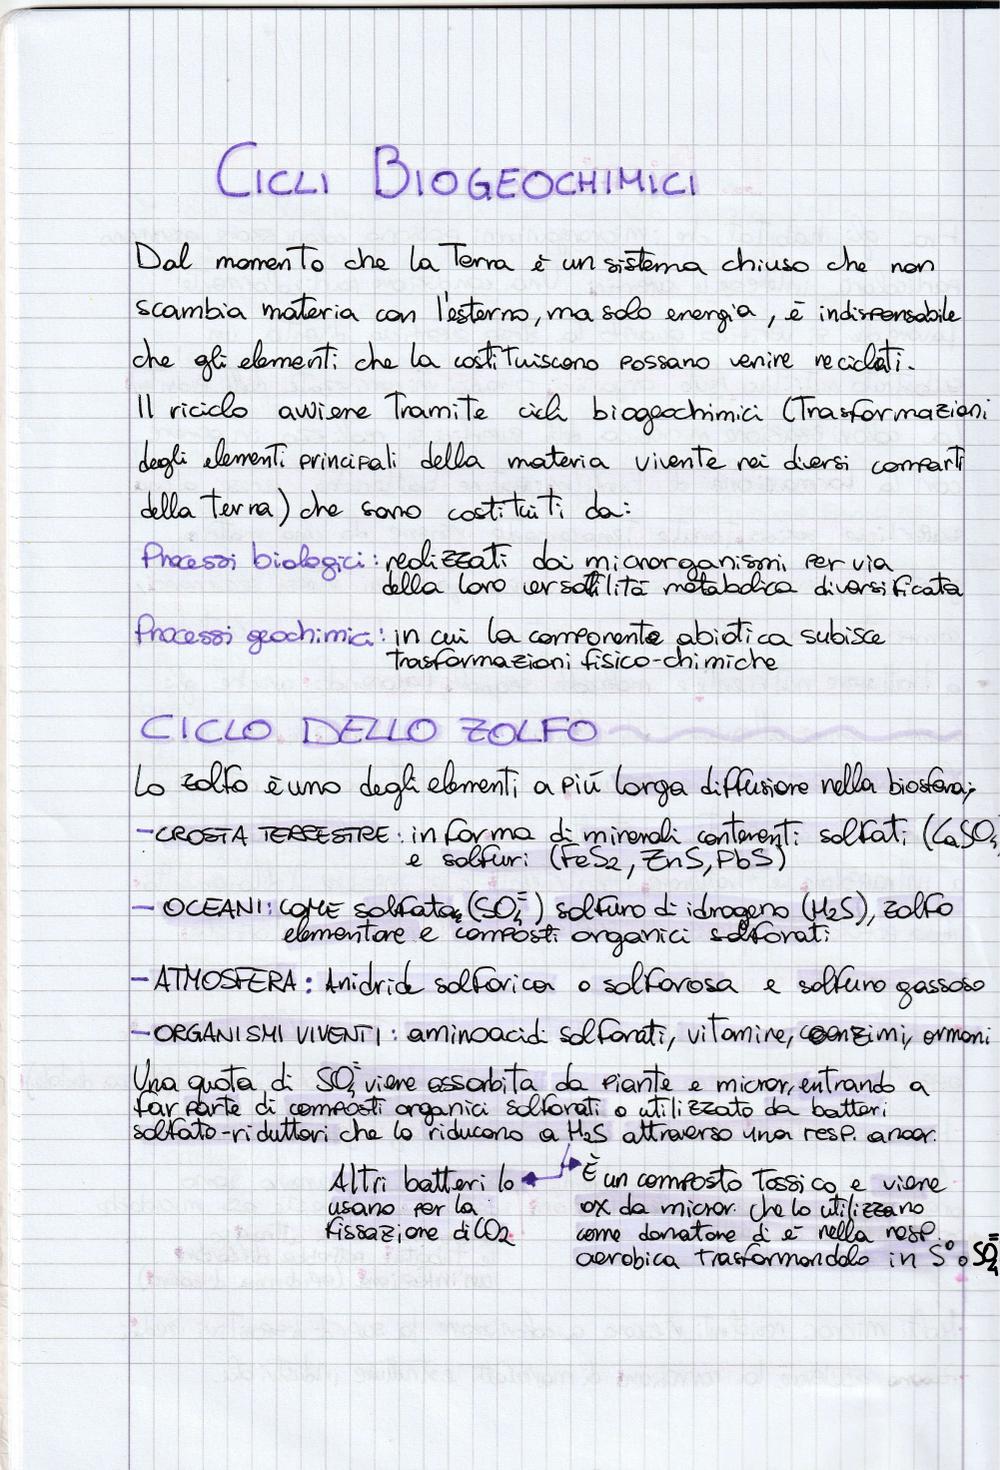 CICLI BIOGEOCHIMICI
Dal momento che la Terra è un sistema chiuso che non
scambia materia con l'esterno, ma solo energia, è indispensabile
che gli elementi che la costituiscono possano venire reciclati.
Il riciclo avviene tramite cicli biogeochimici (trasformazioni
degli elementi principali della materia vivente nei diversi comparti
della terra) che sono costituiti da:
Processi biologici: realizzati dai microrganismi per via
della loro versatilità metabolica diversificata
Processi geochimici: in cui la componente abiotica subisce
trasformazioni fisico-chimiche
CICLO DELLO ZOLFO
Lo zolfo è uno degli elementi a più larga diffusione nella biosfera;
- CROSTA TERRESTRE: in forma di minerali contenenti solfati (CaSO4)
e solfuri (FeS2, ZnS, PbS)
- OCEANI: COME solfato (SO4=) solfuro di idrogeno (H2S), zolfo
elementare e composti organici solforati
- ATMOSFERA: Anidride solforica o solforosa e solfuro gassoso
- ORGANISMI VIVENTI: aminoacidi solforati, vitamine, coenzimi, ormoni
Una quota di SO4= viene assorbita da piante e micror, entrando a
far parte di composti organici solforati o utilizzato da batteri
solfato-riduttori che lo riducono a H2S attraverso una resp. anaer.
Altri batteri lo
usano per la
fissazione di CO2
È un composto tossico e viene
ox da micror. che lo utilizzano
come donatore di e⁻ nella resp.
aerobica trasformandolo in S° o SO4=